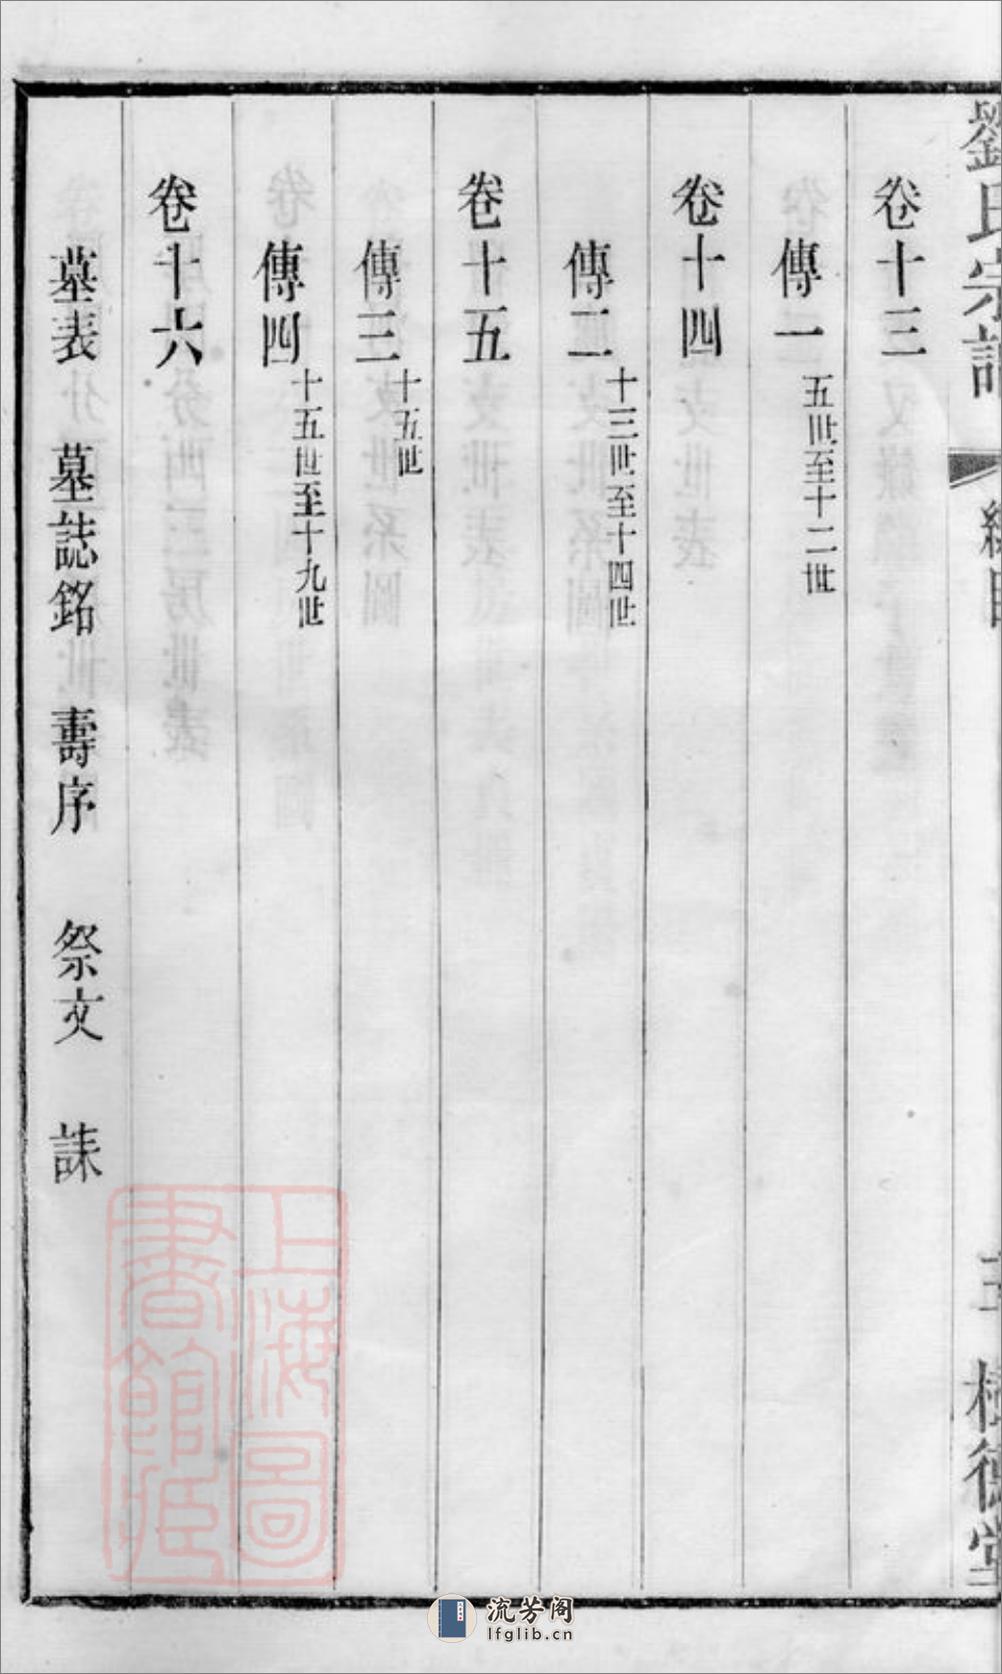 劉氏宗譜
總目
德堂
卷十三
傳一 五世至十二世
卷十四
傳二 十三世至十四世
卷十五
傳三 十五世
傳四 十五世至十九世
卷十六
墓表 墓誌銘 壽序 祭文 誄
上海圖書館藏
流芳阁
lfglib.cn